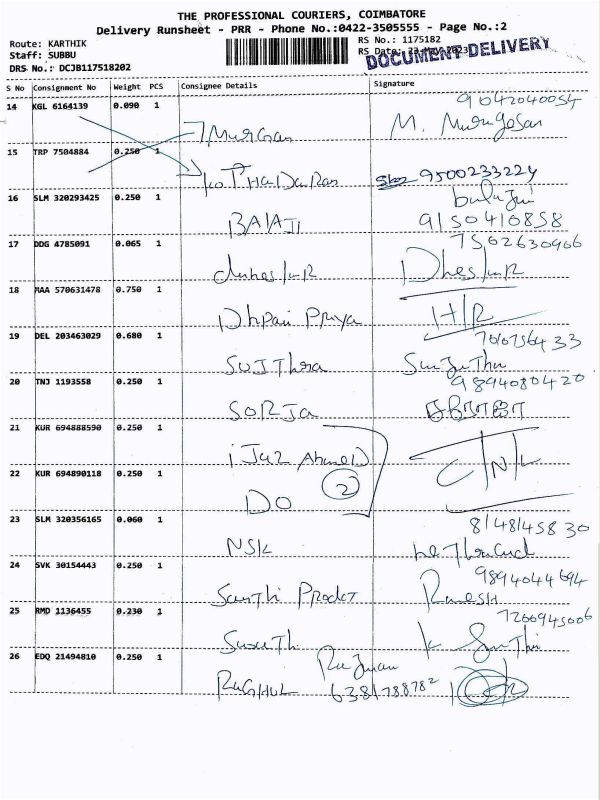 THE PROFESSIONAL COURIERS, COIMBATORE
Delivery Runsheet - PRR - Phone No.:0422-3505555 - Page No.:2
Route: KARTHIK
RS No.: 1175182
Staff: SUBBU
RS Date: 23-MAY-2023
DOCUMENT DELIVERY
DRS No.: DCJB117518202
S No Consignment No Weight PCS Consignee Details Signature
14 KGL 6164139 0.090 1
9042040054
Murgan M. Murugesan
15 TRP 7504884 0.250 1
9500233224
16 SLM 320293425 0.250 1
balaji
BALAJI 9150410858
17 DDG 4785091 0.065 1
7502630966
18 MAA 570631478 0.750 1
Priya H/R
19 DEL 203463029 0.680 1
SUJIThra
20 TNJ 1193558 0.250 1
9894080420
SORJa
21 KUR 694888590 0.250 1
iJaz Ahmed
22 KUR 694890118 0.250 1
C/N/L
DO 2
23 SLM 320356165 0.060 1
8148145830
NSK
24 SVK 30154443 0.250 1
9894044694
Santhi Prodct Ramesh
25 RMD 1136455 0.230 1
7200945006
26 EDQ 21494810 0.250 1
RaGHUL 6381788782